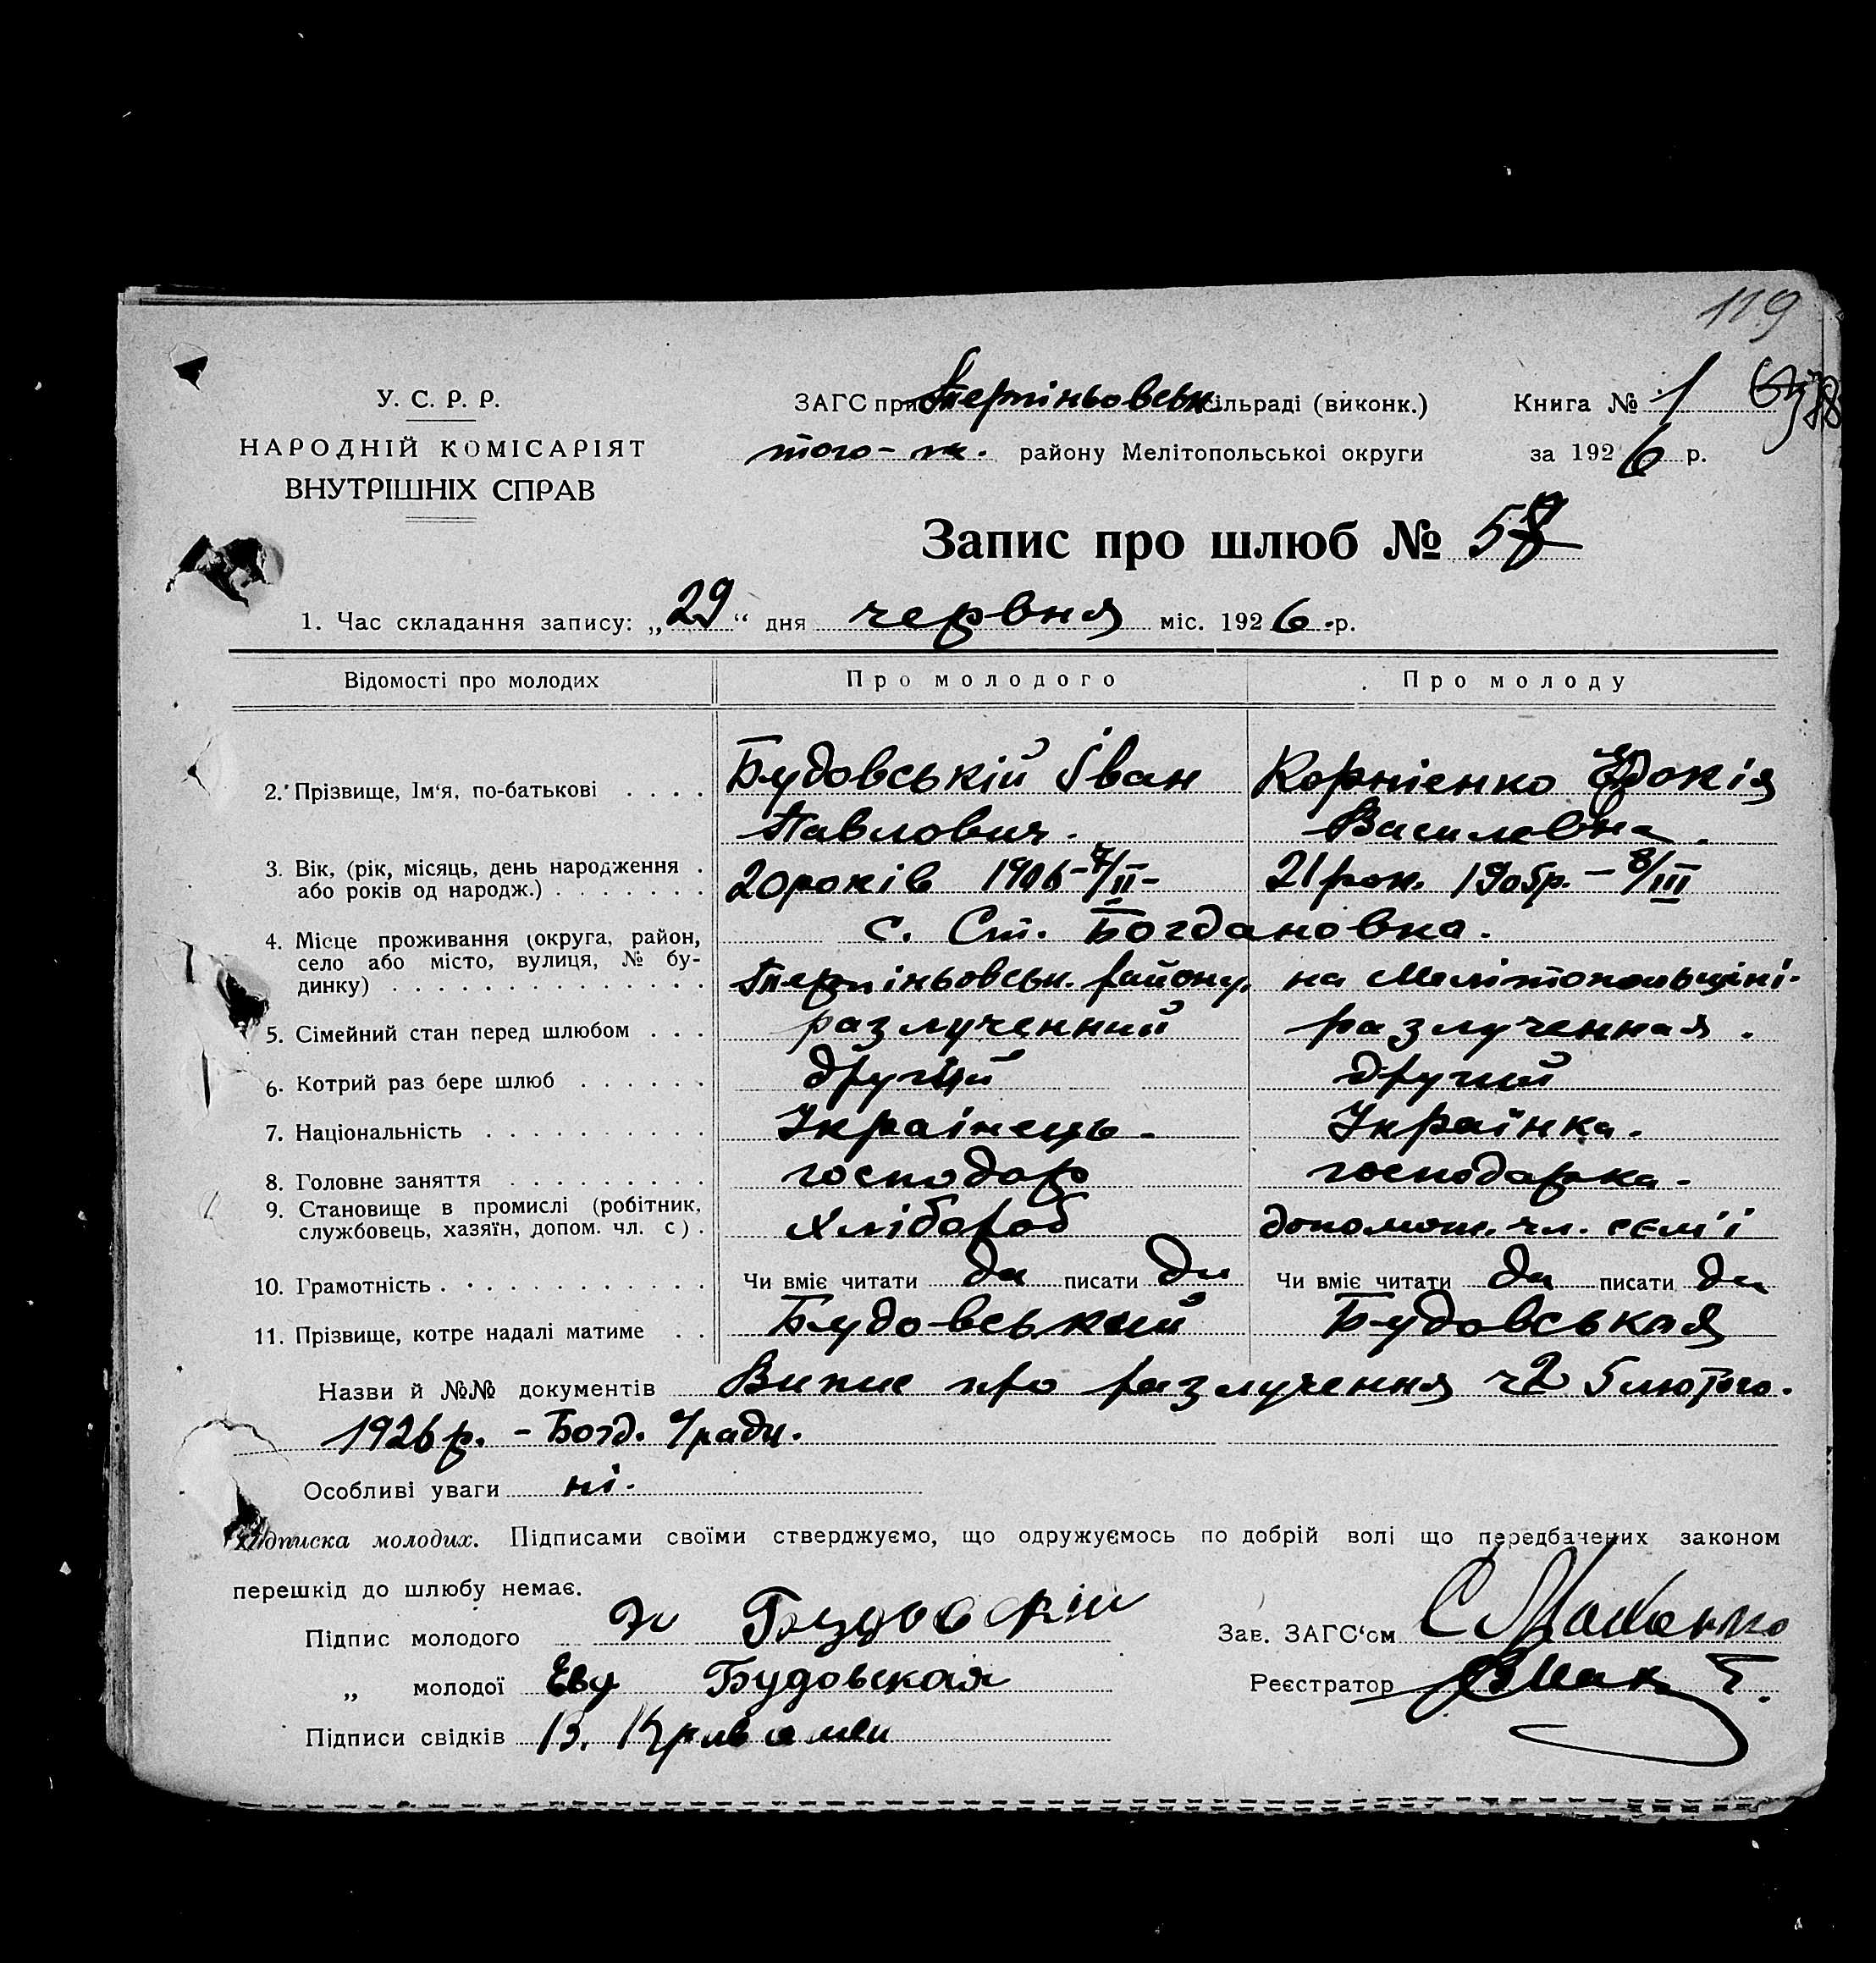 119
У. С. Р. Р.
НАРОДНІЙ КОМІСАРІЯТ
ВНУТРІШНІХ СПРАВ
ЗАГС при Терпіньовськ. сільраді (виконк.)
того-ж. району Мелітопольської округи
Книга № 1
за 1926 р.
Запис про шлюб № 57
1. Час складання запису: „29“ дня червня міс. 1926 р.
Відомості про молодих Про молодого Про молоду
2. Прізвище, Ім'я, по-батькові . . . . Будовській Іван Корнієнко Евдокія
Павлович. Василевна.
3. Вік, (рік, місяць, день народження . 20 років 1906 - 7/II - 21 рок. 1905р. - 8/III
або років од народж.) . . . . . . .
4. Місце проживання (округа, район, с. Ст. Богдановка.
село або місто, вулиця, № бу-
динку) . . . . . . . . . . . . . . Терпіньовськ. району, на Мелітопольщині.
5. Сімейний стан перед шлюбом . . . разлученний разлученная.
6. Котрий раз бере шлюб . . . . . . другий другий
7. Національність . . . . . . . . . . Українець. Українка.
8. Головне заняття . . . . . . . . . господар господарка.
9. Становище в промислі (робітник,
службовець, хазяїн, допом. чл. с) . хлібороб допомож. чл. сєм'і
10. Грамотність . . . . . . . . . . . Чи вміє читати да писати да Чи вміє читати да писати да
11. Прізвище, котре надалі матиме . . Будовський Будовськая
Назви й №№ документів Випис про разлучення ч2 5 лютого.
1926 р. - Богд. с/ради.
Особливі уваги ні.
Підписка молодих. Підписами своїми стверджуємо, що одружуємось по добрій волі що передбачених законом
перешкід до шлюбу немає.
Підпис молодого Будовскій
Зав. ЗАГС'ом
„ молодої Евд Будовская
Реєстратор
Підписи свідків В.